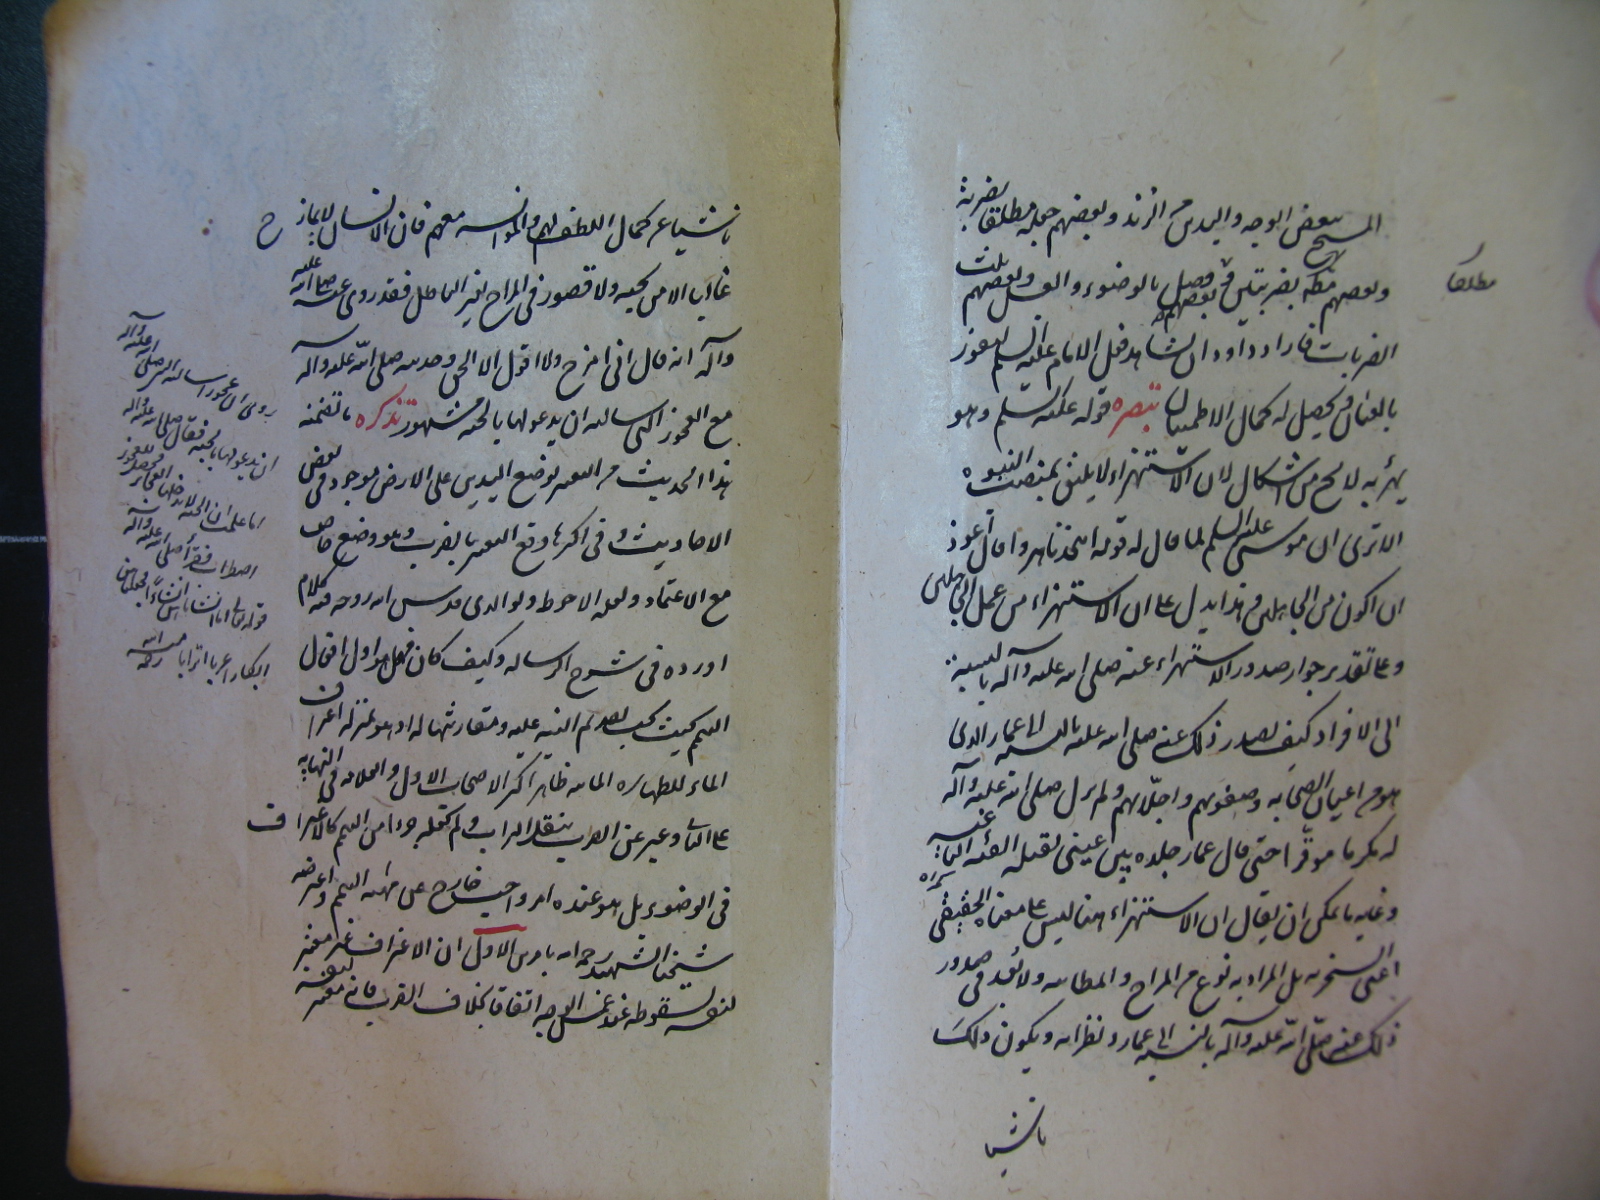 المسح ببعض الوجه واليدين من الزند وبعضهم جعله مطلقا بضربة
وبعضهم مطلقا بضربتين وبعضهم فصل بالوضوء والغسل وبعضهم بثلث
الضربات فاراد داود ان يشاهد فعل الامام عليه السلم ليفوز
بالعيان فيحصل له كمال الاطمينان تبصره قوله عليه السلم وهو
يهزء به لا يخ من اشكال لان الاستهزاء لا يليق بمنصب النبوه
الا ترى ان موسى عليه السلم لما قال له قومه اتتخذنا هزوا قال اعوذ
ان اكون من الجاهلين وهذا يدل على ان الاستهزاء من عمل الجاهلين
وعلى تقدير جواز صدور الاستهزاء عنه صلى الله عليه وآله بالنسبة
الى الافراد كيف يصدر ذلك عنه صلى الله عليه بالنسبه الى عمار الذى
هو من اعيان الصحابه وصفوتهم واجلائهم ولم يزل صلى الله عليه وآله
له مكرما موقرا حتى قال عمار جلده بين عينى تقتله الفئه الباغيه
وغايه ما يمكن ان يقال ان الاستهزاء هنا ليس على معناه الحقيقى
اعنى السخريه بل المراد به نوع من المزاح والمطايبه ولا بعد فى صدور
ذلك عنه صلى الله عليه وآله بالنسبه الى عمار ونظرائه ويكون ذلك
ناشيا
مطلقا
ناشيا عن كمال اللطف بهم والموانسه معهم فان الانسان لا يمازح
غالبا الا من يحبه ولا قصور فى المزاح بغير الباطل فقد روى عنه صلى الله عليه
وآله انه قال انى امزح ولا اقول الا الحق وحديثه صلى الله عليه وآله
مع العجوز التى سالته ان يدعو لها بالجنه مشهور تذكره ما تضمنه
هذا الحديث من التعبير بوضع اليدين على الارض موجود فى بعض
الاحاديث وفى اكثرها وقع التعبير بالضرب وهو وضع خاص
مع الاعتماد ولعله الاحوط ولوالدى قدس الله روحه فيه كلام
اورده فى شرح الرساله وكيف كان فهل هو اول افعال
التيمم بحيث يجب تقديم النيه عليه ومقارنتها له او هو بمنزله اغتراف
الماء للطهاره المائيه ظاهر اكثر الاصحاب الاول والعلامه فى النهايه
على الثانى وعبر عن الضرب بنقل التراب ولم يجعله جزءا من التيمم كالاغتراف
فى الوضوء بل هو عنده امر واجب خارج عن ماهيه التيمم واعترضه
شيخنا الشهيد رحمه الله بان الاول ان الاغتراف غير معتبر
لنفسه لسقوطه عند غمس الوجه اتفاقا بخلاف الضرب فانه معتبر لنفسه
روى ان عجوزا سالت النبى صلى الله عليه وآله
ان يدعو لها بالجنه فقال صلى الله عليه وآله
اما علمت ان الجنه لا يدخلها العجائز
اضطراب فقرأ صلى الله عليه وآله
قوله تعالى انا انشأناهن انشاءً فجعلناهن
ابكارا عربا اترابا منه رحمه الله